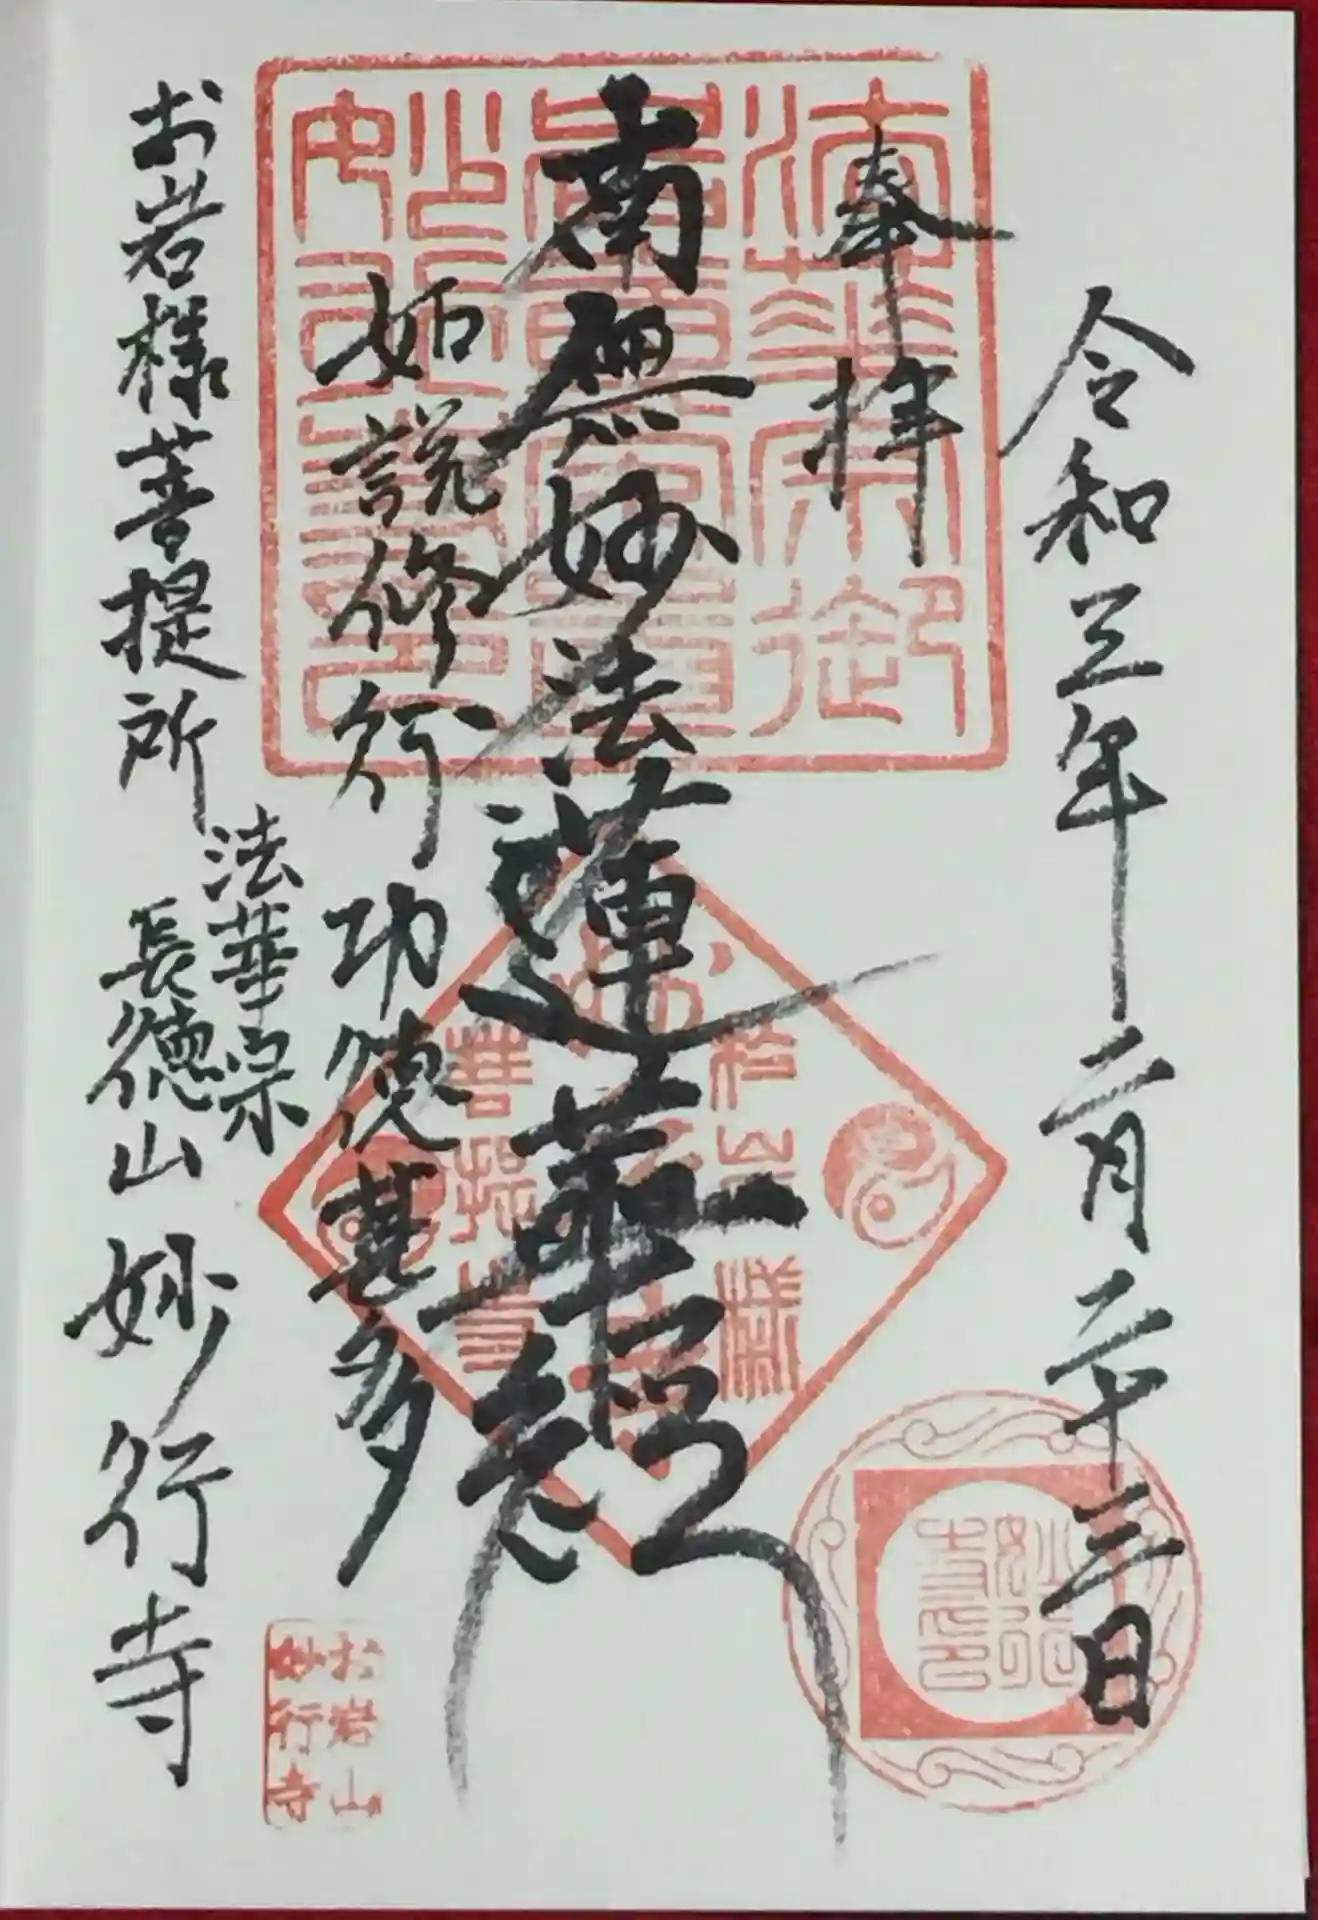 令和三年二月二十三日
奉拝
南無妙法蓮華経
如説修行功徳甚多
法華宗
お岩様菩提所 長徳山 妙行寺
妙行寺印
お岩山
妙行寺